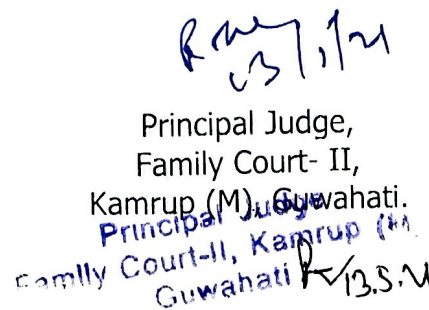 Principal Judge,
Family Court- II,
Kamrup (M), Guwahati.
Principal Judge
Family Court-II, Kamrup (M
Guwahati